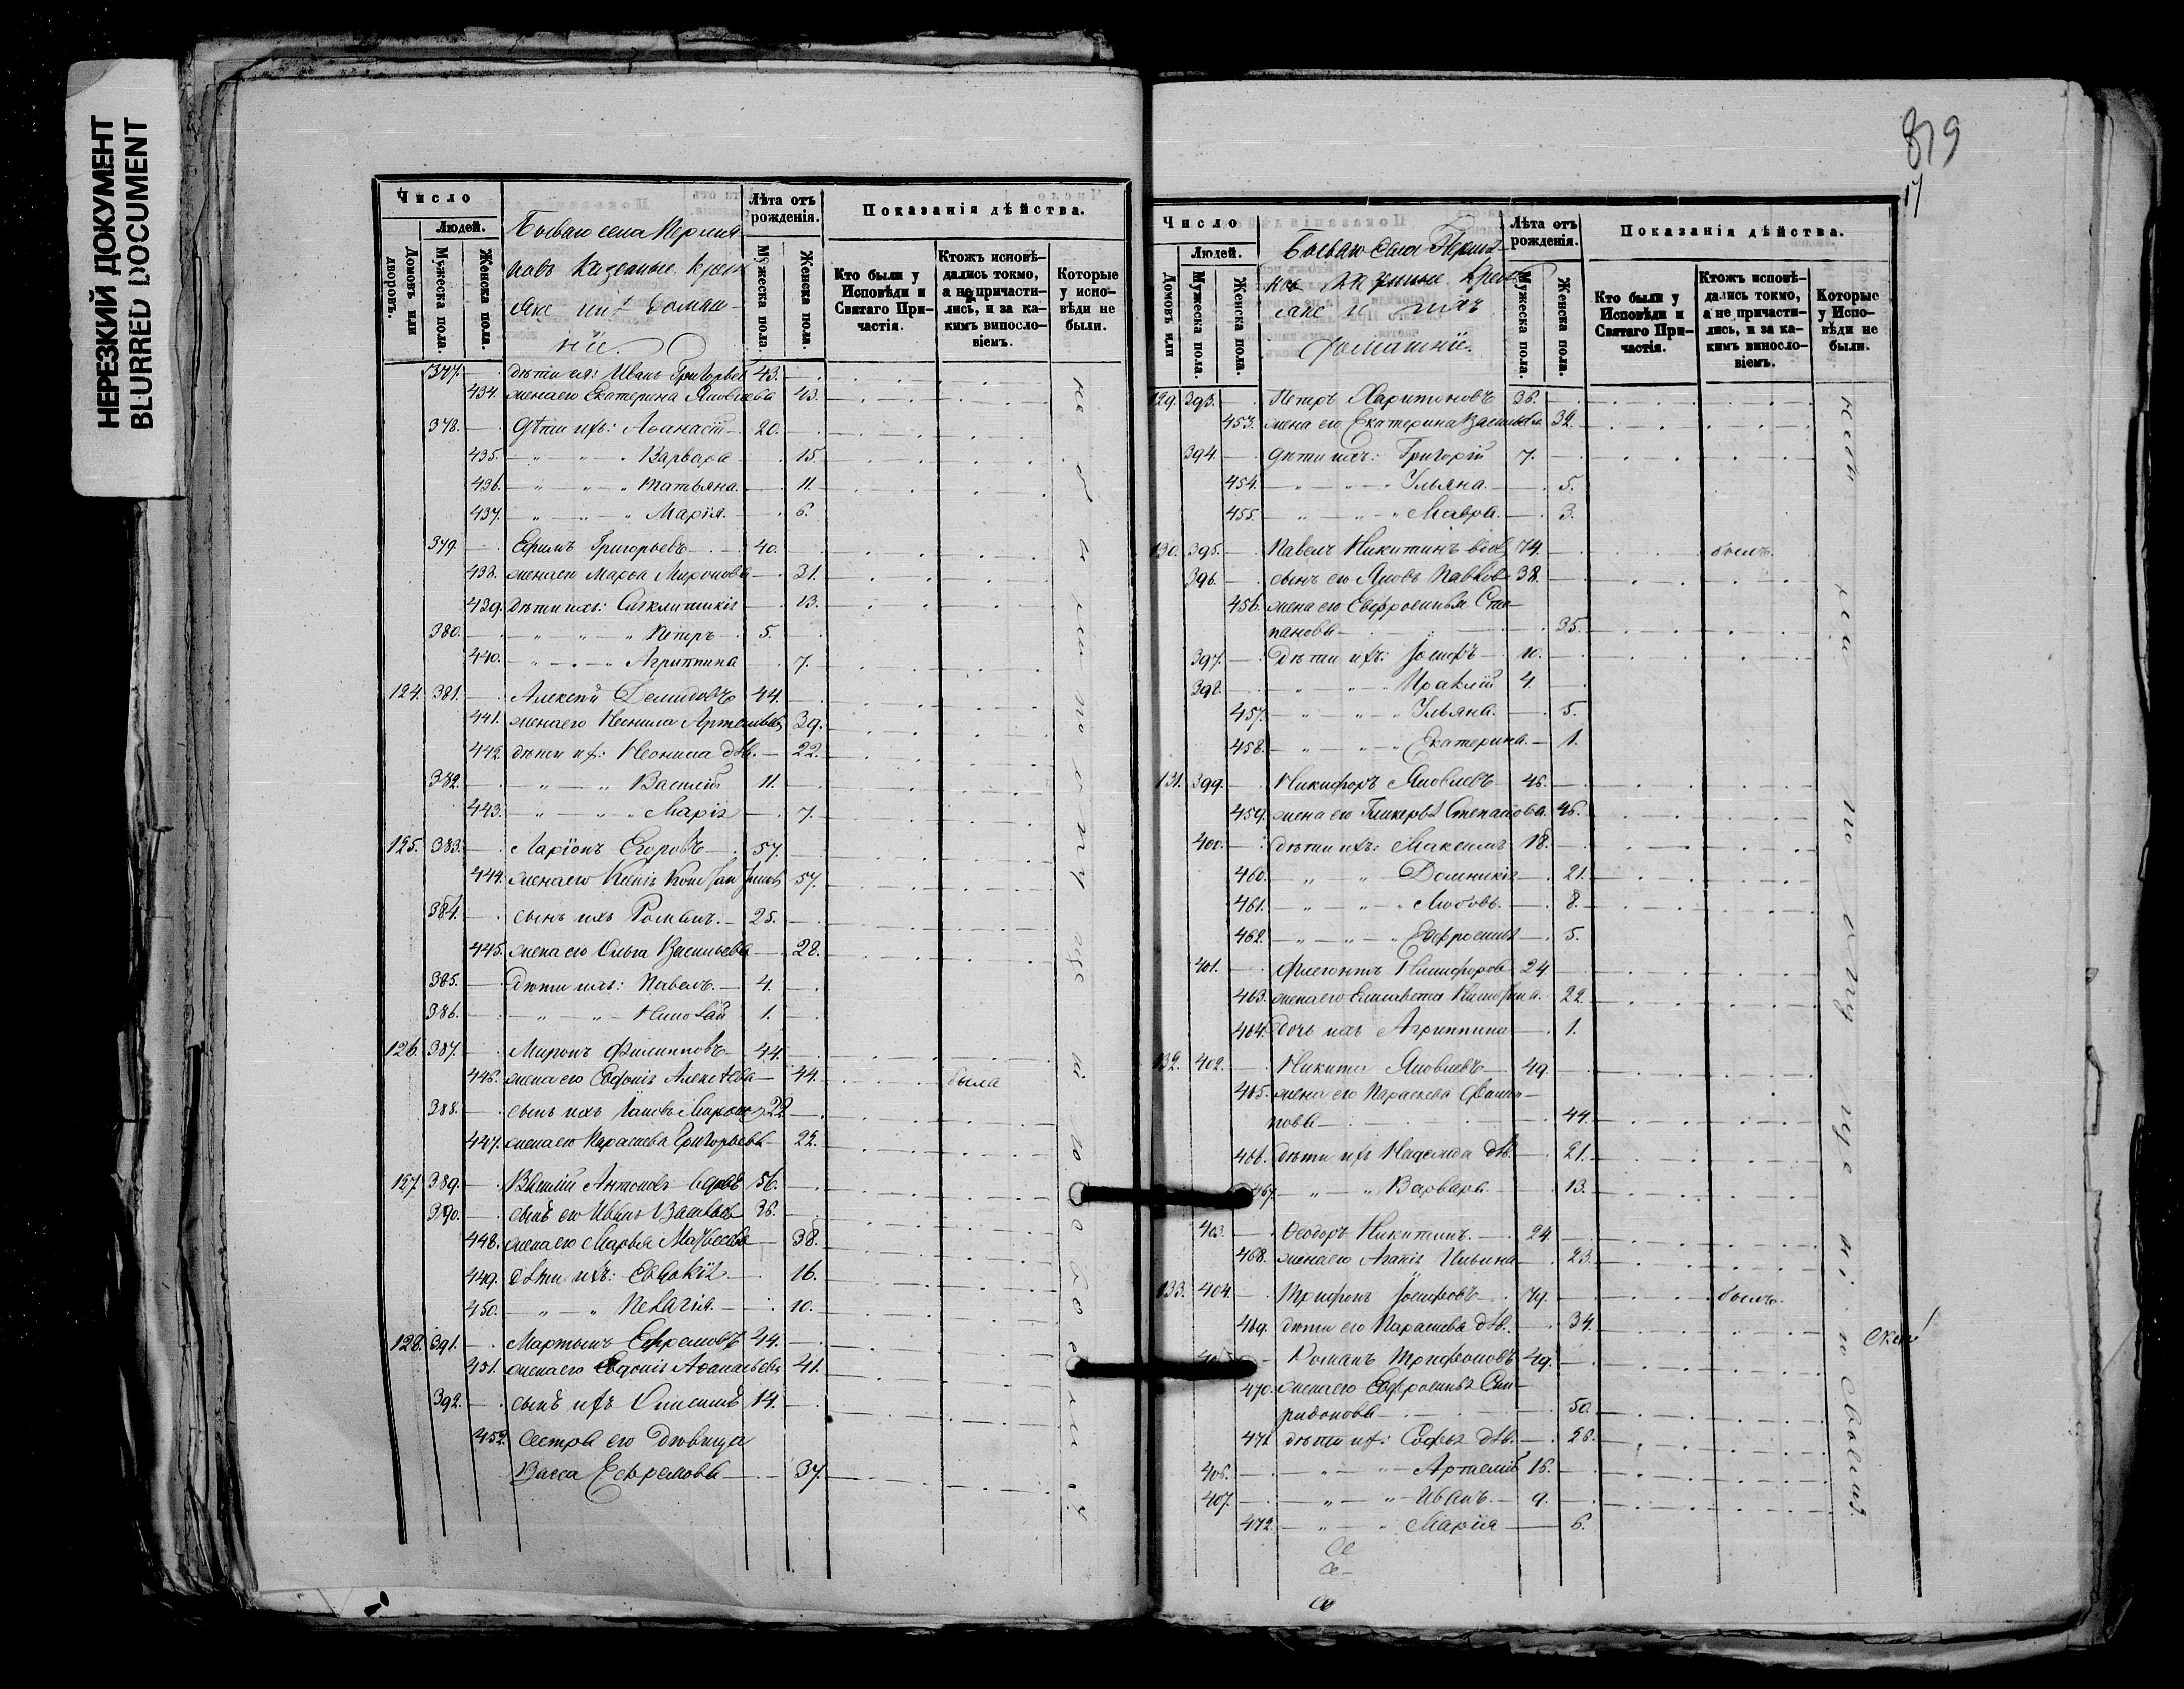 НЕРЕЗКИЙ ДОКУМЕНТ
BLURRED DOCUMENT
Число
Людей.
Домовъ или дворовъ.
Мужеска пола.
Женска пола.
Лѣта отъ рожденія.
Мужеска пола.
Женска пола.
Показанія дѣйства.
Кто были у Исповѣди и Святаго Причастія.
Ктожъ исповѣдались токмо, а не причастились, и за какимъ винословіемъ.
Которые у исповѣди не были.
377. дѣти ея: Иванъ Григорьев 43.
434. жена его Екатерина Яковлева 43.
378. Дѣти ихъ: Аѳанасій 20.
435. " " Варвара 15.
436. " " Татьяна. 11.
437. " " Марія. 6.
379. Ефимъ Григорьевъ 40.
438. жена его Марѳа Миронова 31.
439. дѣти ихъ: Синклитикія 13.
380. " " Петръ 5.
440. " " Агриппина 7.
124. 381. Алексѣй Демидовъ 44.
441. жена его Неонила Артемьева 39.
442. дѣти их: Неонила дѣв. 22.
382. " " Василій 11.
443. " " Марія 7.
125. 383. Ларіонъ Егоровъ 57.
444. жена его 57.
384. сынъ ихъ Романъ. 25.
445. жена его Ольга Васильева 28.
385. Дѣти ихъ: Павелъ. 4.
386. " " Николай 1.
126. 387. Миронъ Филипповъ 44.
446. жена его Алексѣева 44. была
388. сынъ ихъ 22
447. жена его Параскева Григорьева 22.
127. 389. Василій Антоновъ вдовъ 56.
390. сынъ его Иванъ Васильев 36.
448. жена его Марья Матвеева 38.
449. дѣти ихъ: Евдокія 16.
450. " " Пелагія. 10.
128. 391. Мартынъ Ефремовъ 44.
451. жена его Аѳанасьева 41.
392. сынъ ихъ 14.
452. Сестра его Дѣвица
Васса Ефремова 37.
819
17
Число
Людей.
Домовъ или
Мужеска пола.
Женска пола.
Домашніе.
Лѣта отъ рожденія.
Мужеска пола.
Женска пола.
Показанія дѣйства.
Кто были у Исповѣди и Святаго Причастія.
Ктожъ исповѣдались токмо, а не причастились, и за какимъ винословіемъ.
Которые у Исповѣди не были.
129. 393. Петръ Харитоновъ 36.
453. жена его Екатерина Васильева 32.
394. Дѣти ихъ: Григорій 7.
454. " " Ульяна. 5.
455. " " Мавра. 3.
130. 395. Павелъ Никитинъ вдов 74. былъ.
396. сынъ его Яковъ Павлов 38.
456. жена его Евфросинья Сте-
панова 35.
397. Дѣти ихъ: Іосифъ 10.
398. " " Ираклій 4.
457. " " Ульяна. 5.
458. " " Екатерина. 1.
131. 399. Никифоръ Яковлевъ 46.
459. жена его Гликерья Степанова. 46.
400. дѣти ихъ: Максимъ 18.
460. " " Домникія 21.
461. " " Любовь. 8.
462. " " Евфросинія 5.
401. Флегонтъ Никифоров 24
463. жена его Елисавета 22.
464. дочь ихъ Агриппина 1.
132. 402. Никита Яковлевъ 49.
465. жена его Параскева Филип-
пова 44.
466. дѣти ихъ Надежда дѣв. 21.
467. " " Варвара. 13.
403. Ѳеодоръ Никитинъ. 24.
468. жена его Агапія Ильина 23.
133. 404. Трифонъ Іосифовъ 79. былъ.
469. дѣти его Параскева дѣв. 34.
405. Романъ Трифоновъ 49.
470. жена его Евфросинья Спи-
ридонова 50.
471. дѣти их: Софья дѣв. 26.
406. " " Артемій 16.
407. " " Иванъ. 9.
472. " " Марія 6.